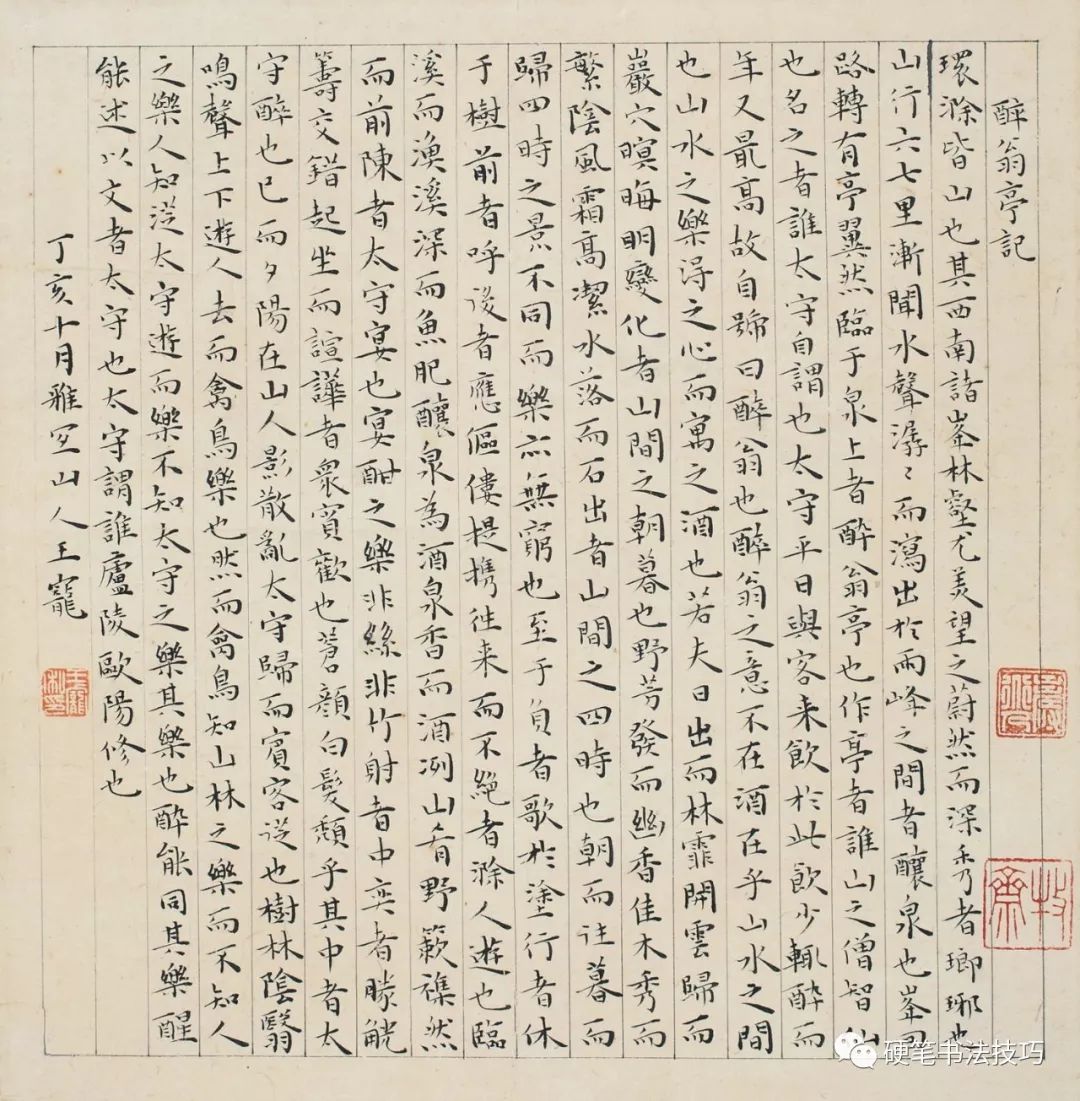 醉翁亭記
環滁皆山也其西南諸峯林壑尤美望之蔚然而深秀者瑯琊也
山行六七里漸聞水聲潺〻而瀉出於兩峰之間者釀泉也峯回
路轉有亭翼然臨于泉上者醉翁亭也作亭者誰山之僧智仙
也名之者誰太守自謂也太守平日與客来飲於此飲少輒醉而
年又最高故自號曰醉翁也醉翁之意不在酒在乎山水之間
也山水之樂淂之心而寓之酒也若夫日出而林霏開雲歸而
巖穴暝晦明變化者山間之朝暮也野芳發而幽香佳木秀而
繁陰風霜高潔水落而石出者山間之四時也朝而往暮而
歸四時之景不同而樂亦無窮也至于負者歌於塗行者休
于樹前者呼後者應傴僂提携往来而不絕者滁人遊也臨
溪而漁溪深而魚肥釀泉為酒泉香而酒洌山肴野蔌襍然
而前陳者太守宴也宴酣之樂非絲非竹射者中奕者勝觥
籌交錯起坐而諠譁者衆賓歡也蒼顏白髮頹乎其中者太
守醉也已而夕陽在山人影散亂太守歸而賓客從也樹林陰翳
鳴聲上下遊人去而禽鳥樂也然而禽鳥知山林之樂而不知人
之樂人知從太守遊而樂不知太守之樂其樂也醉能同其樂醒
能述以文者太守也太守謂誰廬陵歐陽修也
丁亥十月雅宜山人王寵
王寵私印
牧齋
硬笔书法技巧